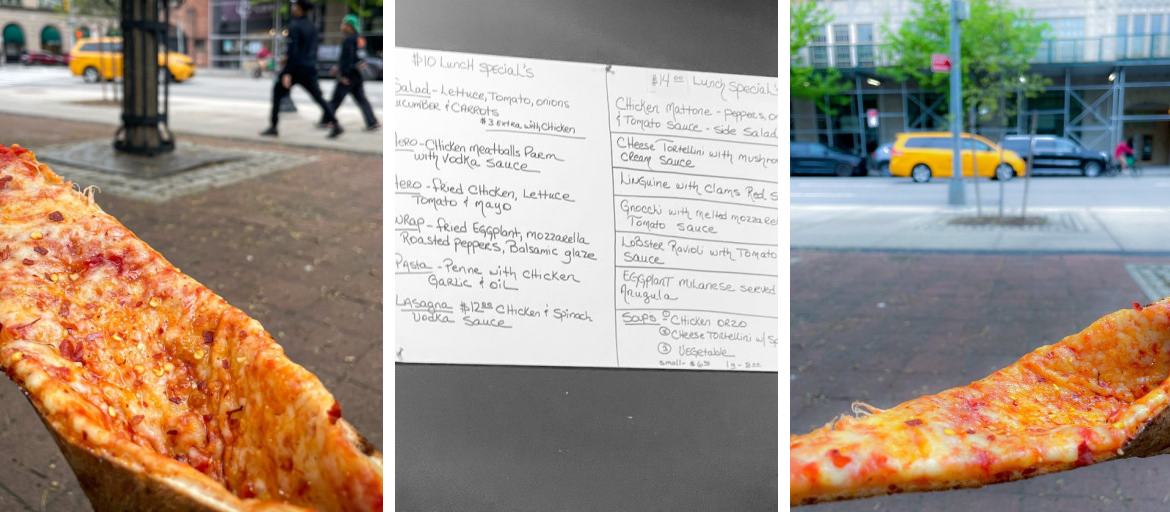 $10 Lunch Special's
Salad - Lettuce, Tomato, onions
cucumber & CARROTS
$3 Extra with Chicken
Hero - Chicken meatballs Parm
with Vodka Sauce
Hero - fried Chicken, Lettuce
Tomato & Mayo
WRAP - fried Eggplant, mozzarella
Roasted peppers, Balsamic glaze
Pasta - Penne with Chicken
Garlic & oil
Lasagna $12 Chicken & Spinach
Vodka Sauce
$14 Lunch Special's
Chicken Mattone - peppers,
& Tomato Sauce - side Salad
Cheese Tortellini with mushro
Cream Sauce
Linguine with Clams Red S
Gnocchi with melted mozzare
Tomato Sauce
Lobster Ravioli with Tomato
Sauce
EGGplanT Milanese served
Arugula
Soups ① Chicken ORZO
② Cheese Tortellini w/ S
③ Vegetable
small - $6 lg -